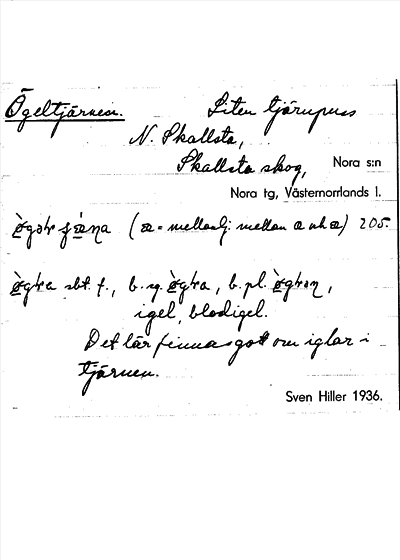 Ögeltjärnen. Liten tjärnpuss
N. Skallsta,
Skallsta skog, Nora s:n
Nora tg, Västernorrlands l.
(æ = mellanlj. mellan a och æ) 205.
sbt. f., b. sg. b. pl.
igel, blodigel.
Det lär finnas gott om iglar i
tjärnen.
Sven Hiller 1936.